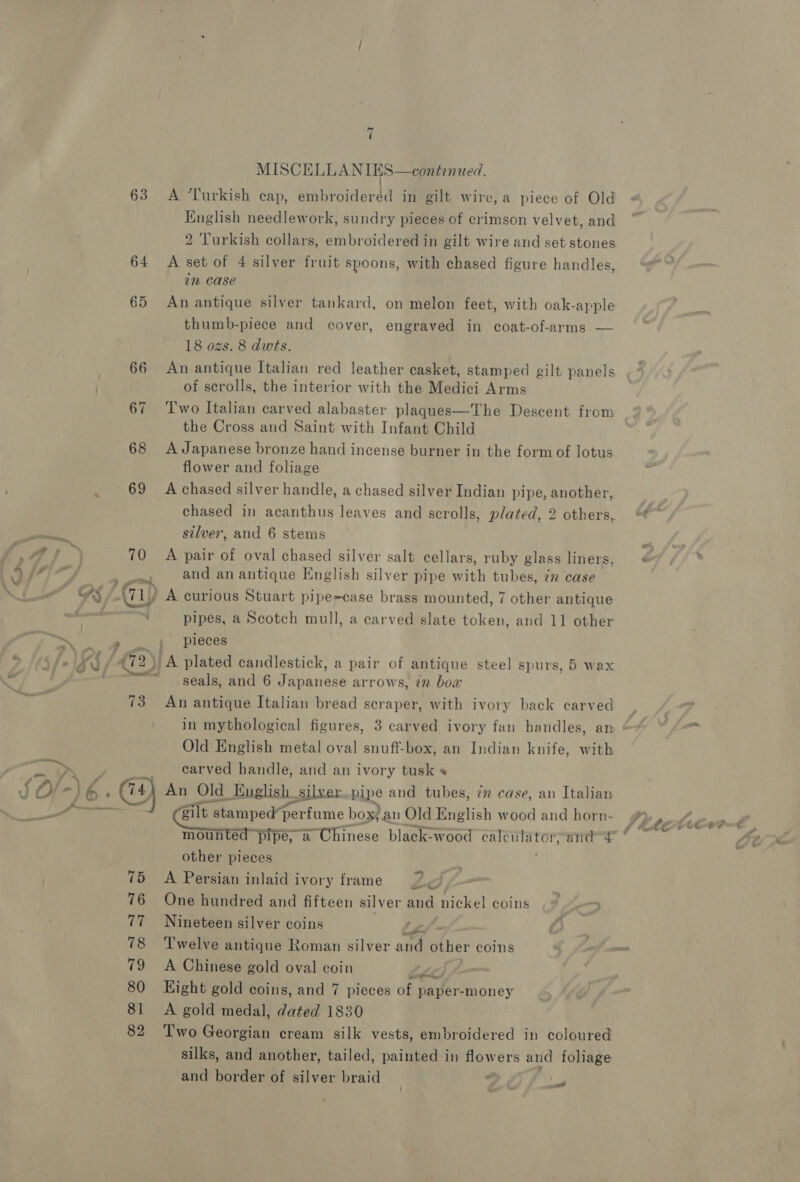 7
MISCELLANIES—continued.
63 A Turkish cap, embroidered in gilt wire, a piece of Old
English needlework, sundry pieces of crimson velvet, and
2 Turkish collars, embroidered in gilt wire and set stones
64 A set of 4 silver fruit spoons, with chased figure handles,
in case
65 An antique silver tankard, on melon feet, with oak-apple
thumb-piece and cover, engraved in coat-of-arms —
18 ozs. 8 dwts.
66 An antique Italian red leather casket, stamped gilt panels
of scrolls, the interior with the Medici Arms
67 Two Italian carved alabaster plaques—The Descent from
the Cross and Saint with Infant Child
68 A Japanese bronze hand incense burner in the form of lotus
flower and foliage
69 A chased silver handle, a chased silver Indian pipe, another,
chased in acanthus leaves and scrolls, plated, 2 others,
silver, and 6 stems
70 A pair of oval chased silver salt cellars, ruby glass liners,
and an antique English silver pipe with tubes, in case
71 A curious Stuart pipe-case brass mounted, 7 other antique
pipes, a Scotch mull, a carved slate token, and 11 other
pieces
72 A plated candlestick, a pair of antique steel spurs, 5 wax
seals, and 6 Japanese arrows, in box
73 An antique Italian bread scraper, with ivory back carved
in mythological figures, 3 carved ivory fan handles, an
Old English metal oval snuff-box, an Indian knife, with
carved handle, and an ivory tusk
74 An Old English silver pipe and tubes, in case, an Italian
gilt stamped perfume box, an Old English wood and horn-
mounted pipe, a Chinese black-wood calculator, and 4
other pieces
75 A Persian inlaid ivory frame
76 One hundred and fifteen silver and nickel coins
77 Nineteen silver coins
78 Twelve antique Roman silver and other coins
79 A Chinese gold oval coin
80 Eight gold coins, and 7 pieces of paper-money
81 A gold medal, dated 1830
82 Two Georgian cream silk vests, embroidered in coloured
silks, and another, tailed, painted in flowers and foliage
and border of silver braid